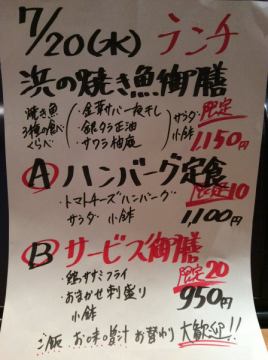 7/20(水) ランチ
浜の焼き魚御膳
焼き魚3種の食べくらべ
・金華サバ一夜干し
・銀タラ正油
・サワラ柚庵
サラダ 小鉢
限定
1,150円
Ⓐハンバーグ定食
・トマトチーズハンバーグ・
サラダ 小鉢
限定10
1,100円
Ⓑサービス御膳
・鶏ササミフライ
・おまかせ刺盛り
小鉢
限定20
950円
ご飯 お味噌汁 お替わり 大歓迎!!